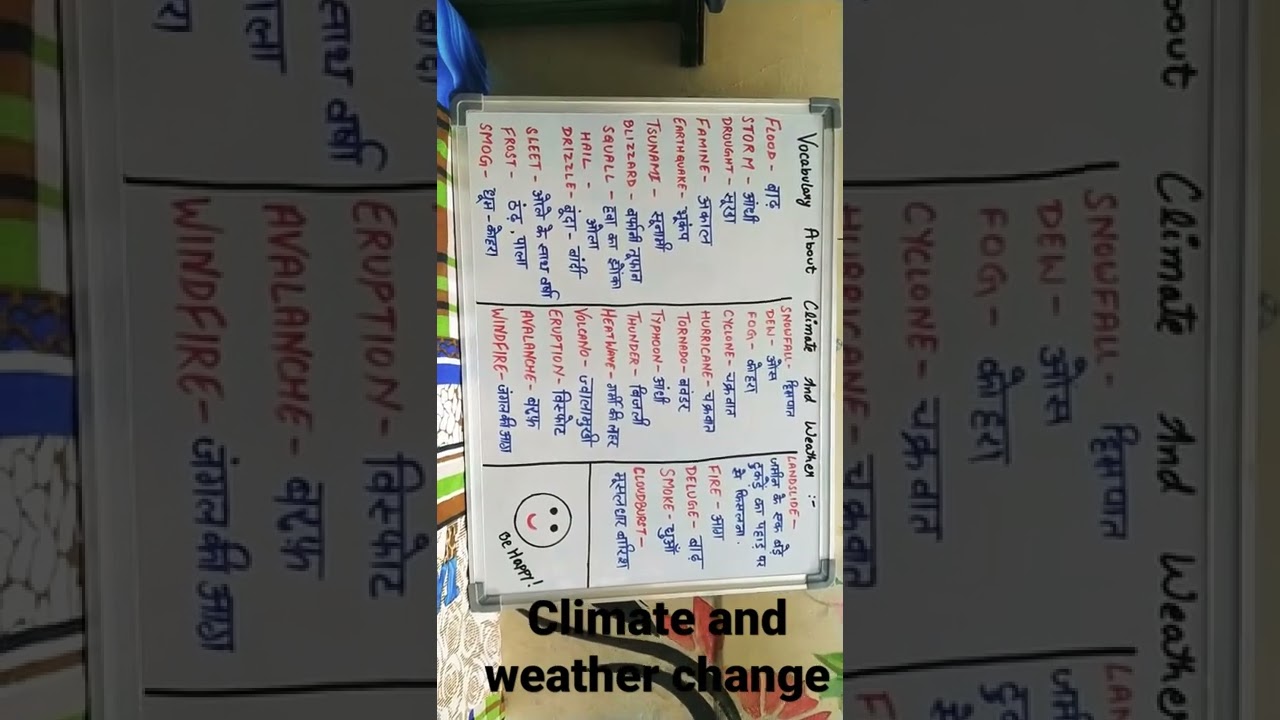 Vocabulary About Climate And Weather :-
FLOOD - बाढ़
STORM - आंधी
DROUGHT - सूखा
FAMINE - अकाल
EARTHQUAKE - भूकंप
TSUNAMI - सूनामी
BLIZZARD - बर्फानी तूफान
SQUALL - हवा का झोंका
HAIL - ओला
DRIZZLE - बूंदा - बांदी
SLEET - ओले के साथ वर्षा
FROST - ठंढ़, पाला
SMOG - धूम - कोहरा
SNOWFALL - हिमपात
DEW - ओस
FOG - कोहरा
CYCLONE - चक्रवात
HURRICANE - चक्रवात
TORNADO - बवंडर
TYPHOON - आंधी
THUNDER - बिजली
HEATWAVE - गर्मी की लहर
VOLCANO - ज्वालामुखी
ERUPTION - विस्फोट
AVALANCHE - बरफ़
WINDFIRE - जंगल की आग
LANDSLIDE -
जमीन के एक बड़े
टुकड़े का पहाड़ पर
से फिसलना .
FIRE - आग
DELUGE - बाढ़
SMOKE - धुआँ
CLOUDBURST -
मूसलधार बारिश
Be Happy!
Climate and
weather change